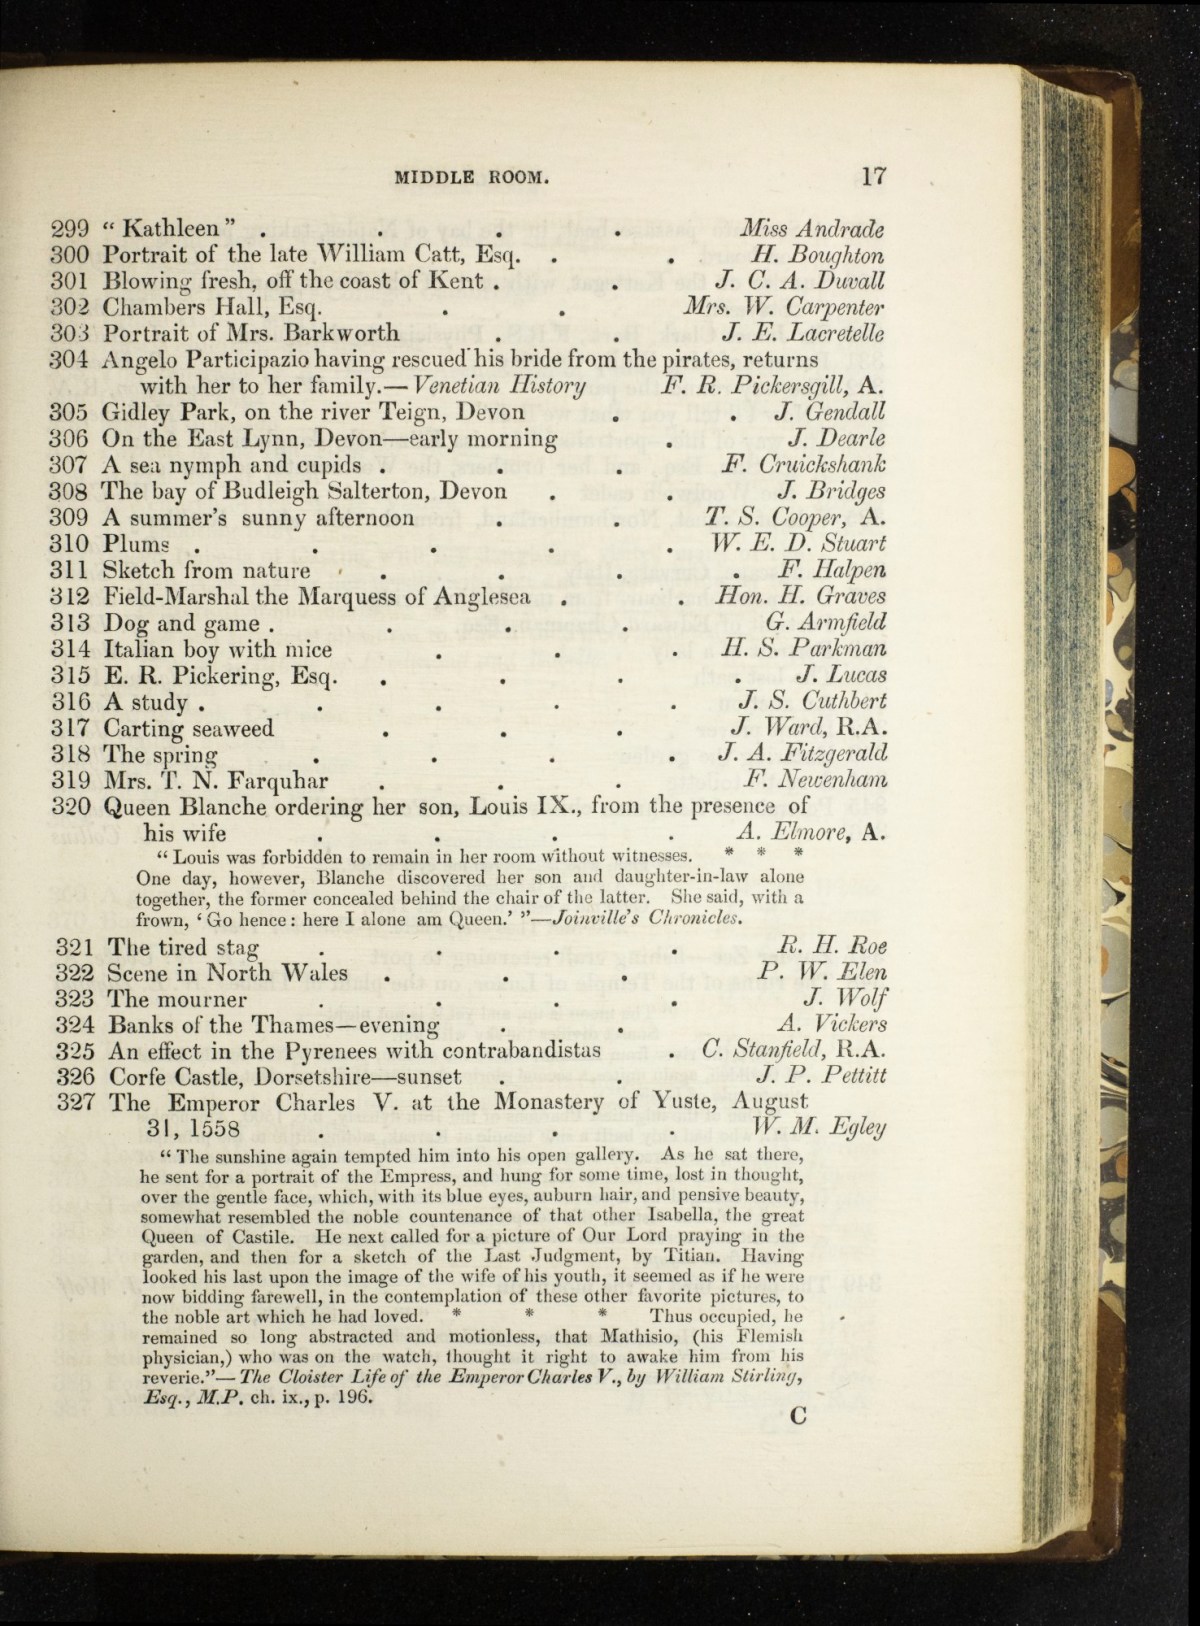 MIDDLE ROOM. 17
299 “ Kathleen ” . . . . Miss Andrade
300 Portrait of the late William Catt, Esq. . . H. Boughton
301 Blowing fresh, off the coast of Kent . . J. C. A. Duvall
302 Chambers Hall, Esq. . . Mrs. W. Carpenter
303 Portrait of Mrs. Barkworth . . J. E. Lacretelle
304 Angelo Participazio having rescued his bride from the pirates, returns
with her to her family.—Venetian History F. R. Pickersgill, A.
305 Gidley Park, on the river Teign, Devon . . J. Gendall
306 On the East Lynn, Devon—early morning . J. Dearle
307 A sea nymph and cupids . . . F. Cruickshank
308 The bay of Budleigh Salterton, Devon . . J. Bridges
309 A summer’s sunny afternoon . . T. S. Cooper, A.
310 Plums . . . . . W. E. D. Stuart
311 Sketch from nature . . . . F. Halpen
312 Field-Marshal the Marquess of Anglesea . . Hon. H. Graves
313 Dog and game . . . . G. Armfield
314 Italian boy with mice . . . H. S. Parkman
315 E. R. Pickering, Esq. . . . . J. Lucas
316 A study . . . . . J. S. Cuthbert
317 Carting seaweed . . . J. Ward, R.A.
318 The spring . . . . J. A. Fitzgerald
319 Mrs. T. N. Farquhar . . . F. Newenham
320 Queen Blanche ordering her son, Louis IX., from the presence of
his wife . . . . A. Elmore, A.
“ Louis was forbidden to remain in her room without witnesses. * * *
One day, however, Blanche discovered her son and daughter-in-law alone
together, the former concealed behind the chair of the latter. She said, with a
frown, ‘ Go hence: here I alone am Queen.’ ”—Joinville’s Chronicles.
321 The tired stag . . . . R. H. Roe
322 Scene in North Wales . . . P. W. Elen
323 The mourner . . . . J. Wolf
324 Banks of the Thames—evening . . A. Vickers
325 An effect in the Pyrenees with contrabandistas . C. Stanfield, R.A.
326 Corfe Castle, Dorsetshire—sunset . . J. P. Pettitt
327 The Emperor Charles V. at the Monastery of Yuste, August
31, 1558 . . . . W. M. Egley
“ The sunshine again tempted him into his open gallery. As he sat there,
he sent for a portrait of the Empress, and hung for some time, lost in thought,
over the gentle face, which, with its blue eyes, auburn hair, and pensive beauty,
somewhat resembled the noble countenance of that other Isabella, the great
Queen of Castile. He next called for a picture of Our Lord praying in the
garden, and then for a sketch of the Last Judgment, by Titian. Having
looked his last upon the image of the wife of his youth, it seemed as if he were
now bidding farewell, in the contemplation of these other favorite pictures, to
the noble art which he had loved. * * * Thus occupied, he
remained so long abstracted and motionless, that Mathisio, (his Flemish
physician,) who was on the watch, thought it right to awake him from his
reverie.”—The Cloister Life of the Emperor Charles V., by William Stirling,
Esq., M.P. ch. ix., p. 196.
C